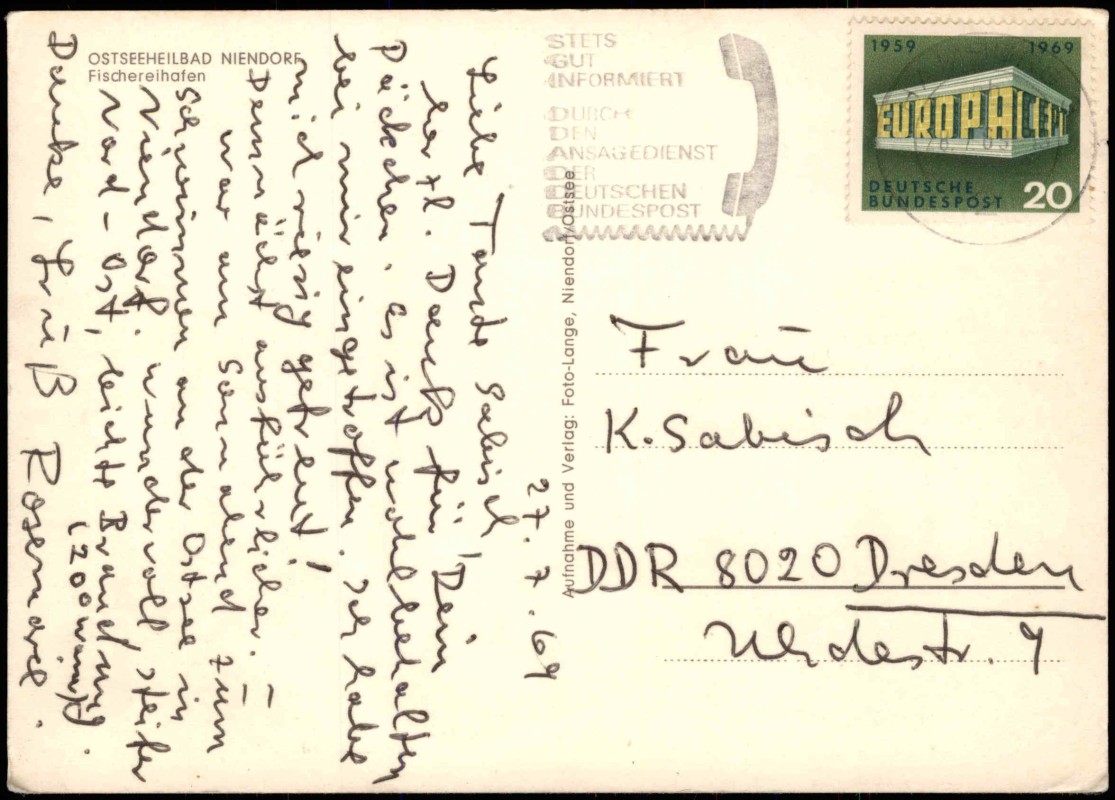 OSTSEEHEILBAD NIENDORF
Fischereihafen
27.7.69
Liebe Tante Sabisch,
herzl. Dank für Dein
Päckchen. es ist wohlbehalten
bei mir eingetroffen. Ich habe
mich riesig gefreut!
Demnächst ausführlicher. –
war am Sonnabend zum
Schwimmen an der Ostsee in
Niendorf. wundervoll, steifer
Nord-Ost, leichte Brandung.
(20° warm!)
Danke, Gruß Rosemarie.
Aufnahme und Verlag: Foto-Lange, Niendorf/Ostsee
STETS
GUT
INFORMIERT
DURCH
DEN
ANSAGEDIENST
DER
DEUTSCHEN
BUNDESPOST
1959 1969
EUROPA CEPT
DEUTSCHE
BUNDESPOST 20
Frau
K. Sabisch
DDR 8020 Dresden
Uhdestr. 9